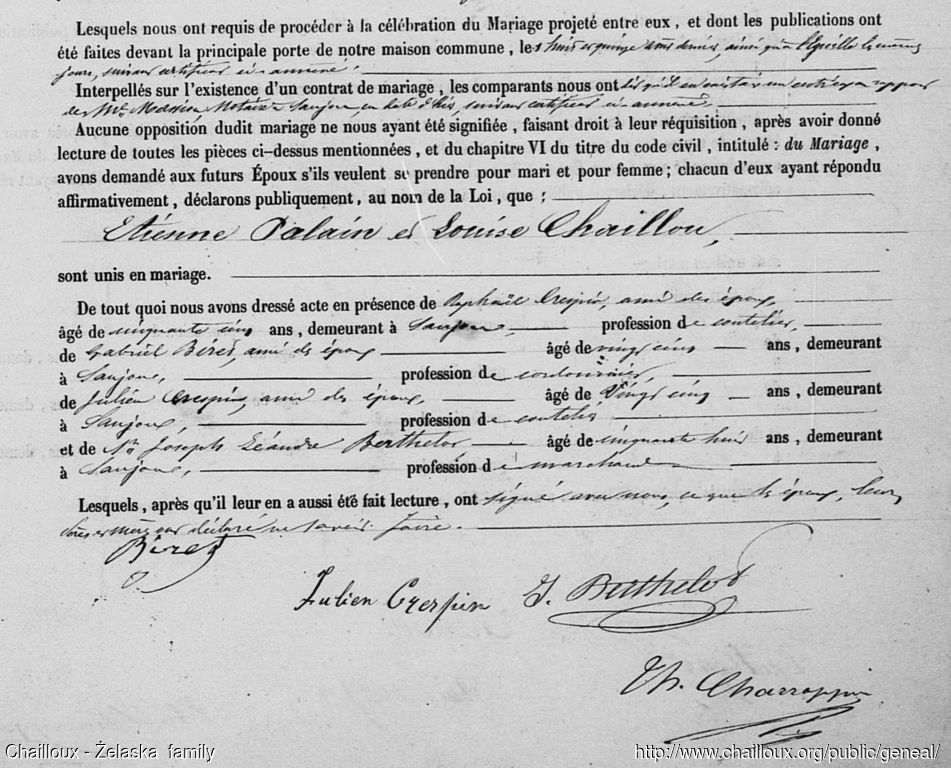 Lesquels nous ont requis de procéder à la célébration du Mariage projeté entre eux, et dont les publications ont
été faites devant la principale porte de notre maison commune, les huit et quinze
jours, suivant certificat ci-annexé.
Interpellés sur l'existence d'un contrat de mariage, les comparants nous ont
Notaire Saujon, en date suivant certificat ci-annexé.
Aucune opposition dudit mariage ne nous ayant été signifiée, faisant droit à leur réquisition, après avoir donné
lecture de toutes les pièces ci-dessus mentionnées, et du chapitre VI du titre du code civil, intitulé : du Mariage,
avons demandé aux futurs Époux s'ils veulent se prendre pour mari et pour femme; chacun d'eux ayant répondu
affirmativement, déclarons publiquement, au nom de la Loi, que :
Etienne Palain et Louise Chaillou,
sont unis en mariage.
De tout quoi nous avons dressé acte en présence de Raphaël Crespin, ami des époux,
âgé de cinquante cinq ans, demeurant à Saujon profession de coutelier,
de Gabriel Béret, ami des époux âgé de vingt cinq ans, demeurant
à Saujon, profession de cordonnier,
de Julien Crespin, ami des époux, âgé de Vingt cinq ans, demeurant
à Saujon, profession de coutelier
et de Mr Joseph Léandre Berthelot âgé de cinquante huit ans, demeurant
à Saujon, profession de marchand
Lesquels, après qu'il leur en a aussi été fait lecture, ont signé avec nous, ce que les époux, leurs
pères et mères ont déclaré ne savoir faire.
Béret
Julien Crespin J. Berthelot
Th. Charroppin
Chailloux - Żelaska family
http://www.chailloux.org/public/geneal/